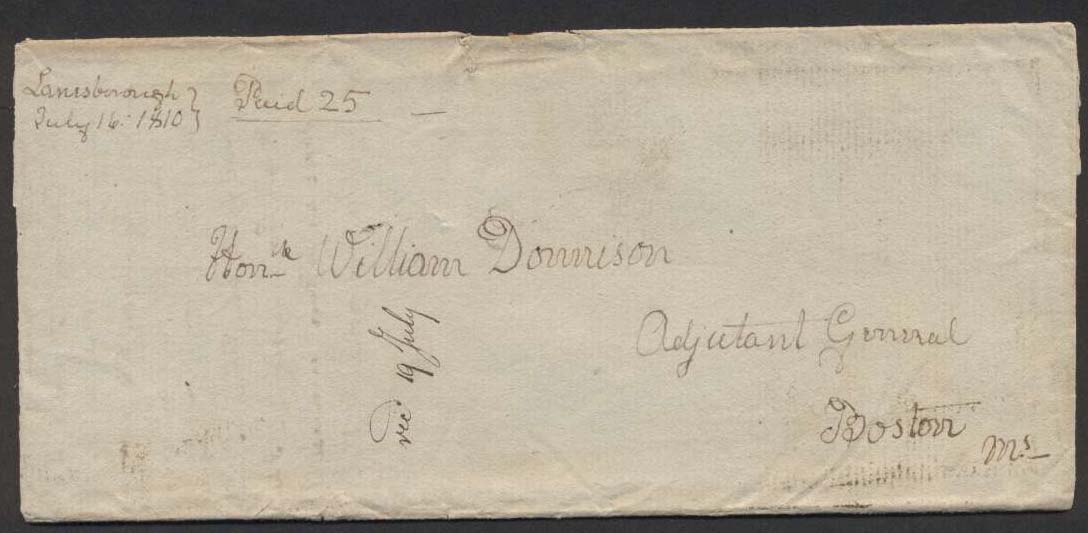 Lanesborough } Paid 25 —
July 16. 1810 }
Honble William Donnison
Adjutant General
Boston
Ms
rec 19 July